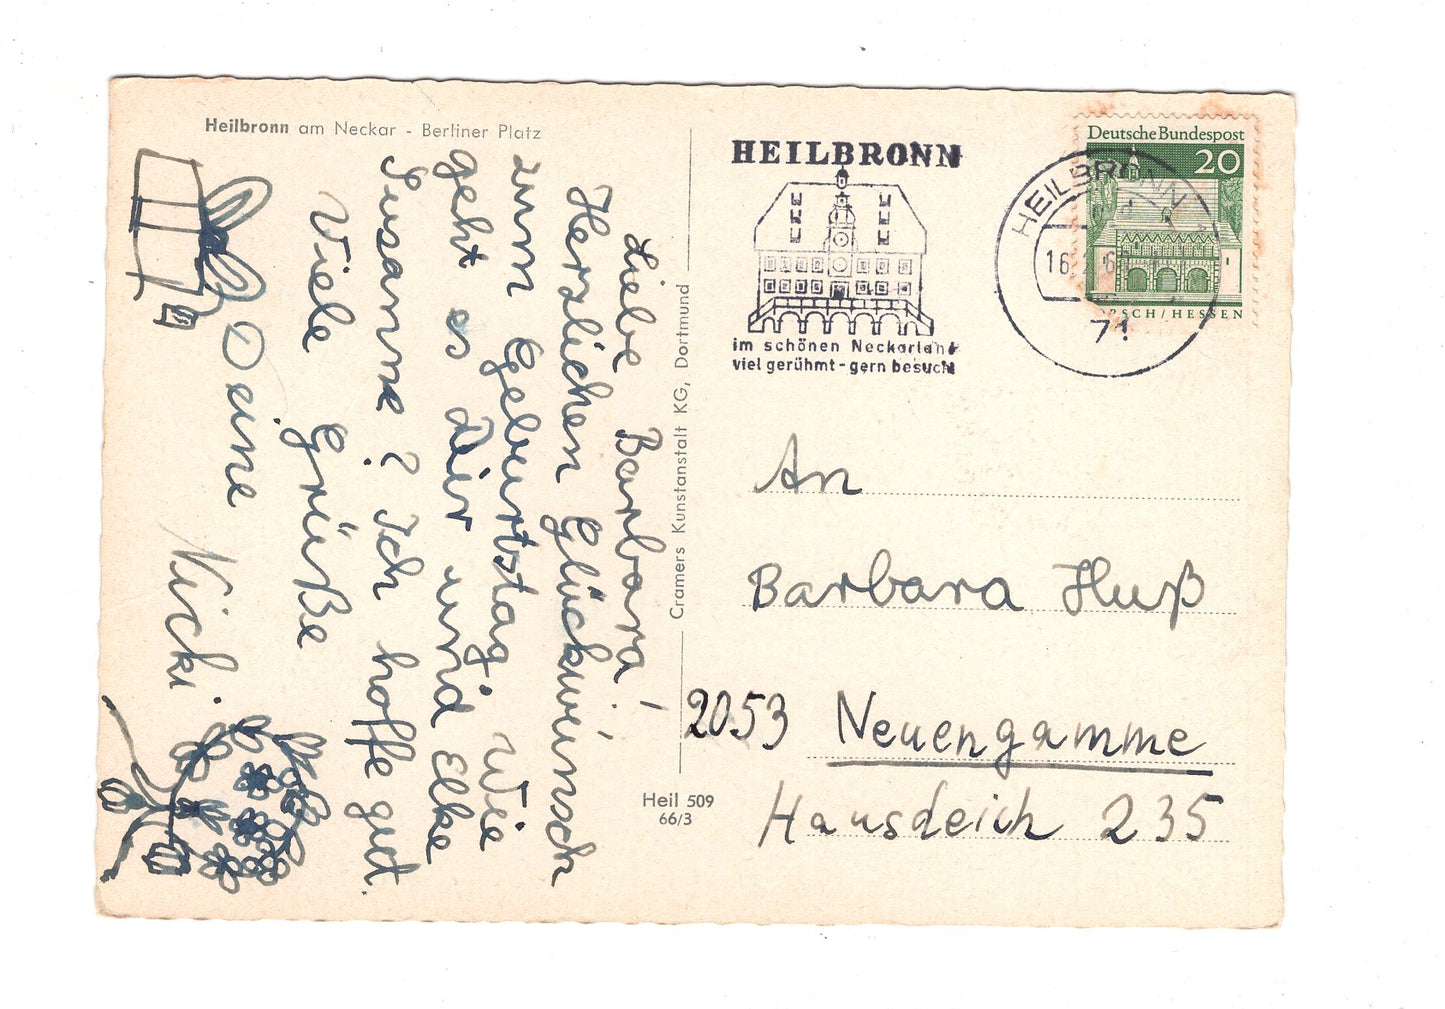 Heilbronn am Neckar - Berliner Platz
Liebe Barbara!
Herzlichen Glückwunsch
zum Geburtstag! Wie
geht es Dir und Elke
Susanne? Ich hoffe gut.
Viele Grüße
Deine
Nicki.
Cramers Kunstanstalt KG, Dortmund
Heil 509
66/3
HEILBRONN
im schönen Neckarland
viel gerühmt - gern besucht
HEILBRONN
16.
71
Deutsche Bundespost
20
LORSCH/HESSEN
An
Barbara Huß
2053 Neuengamme
Hausdeich 235